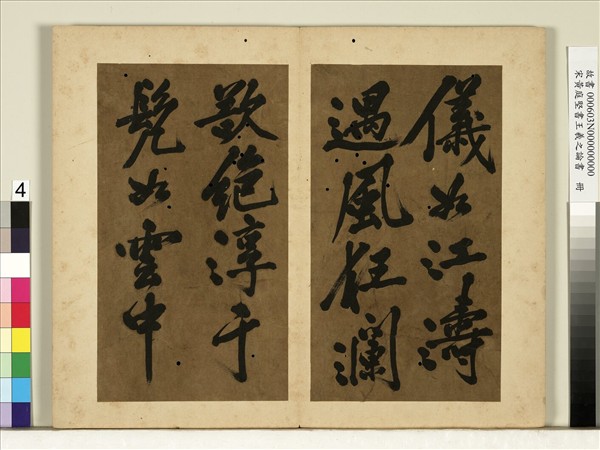 儀如江濤
遇風狂瀾
欲絕淳于
髡如雲中
故書 000603N000000000
宋黃庭堅書王羲之論書 冊
4